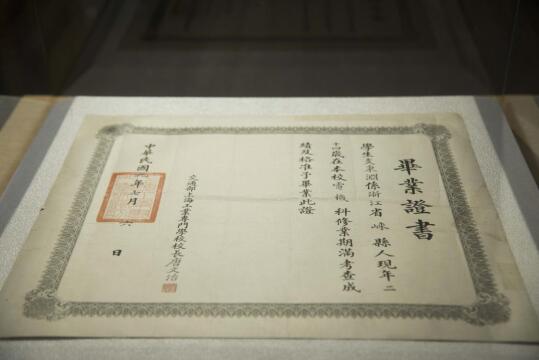 畢業證書
學生支秉淵係浙江省嵊縣人現年二
十四歲在本校電機科修業期滿考查成
績及格准予畢業此證
交通部上海工業專門學校校長唐文治
中華民國年七月日